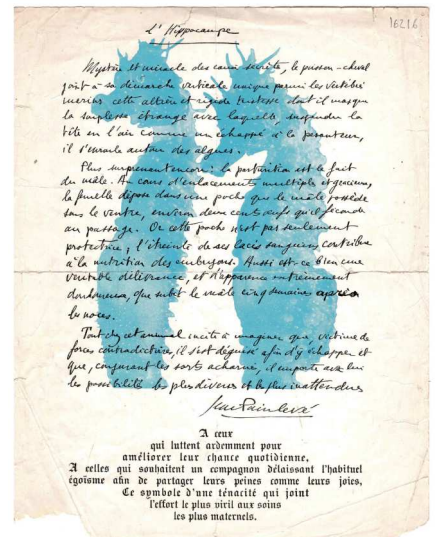 L'Hippocampe
16216
Mystère et miracle des eaux sacrées, le poisson-cheval
joint à sa démarche verticale unique parmi les vertébrés
marins cette altière et rigide tristesse dont il masque
la souplesse étrange avec laquelle, suspendu la
tête en l'air comme un échappé à la pesanteur,
il s'enroule autour des algues.
Plus surprenant encore : la parturition est le fait
du mâle. Au cours d'enlacements multiples et gracieux,
la femelle dépose dans une poche que le mâle possède
sous le ventre, environ deux cents œufs qu'il féconde
au passage. Or cette poche n'est pas seulement
protectrice ; l'étreinte de ses lacis sanguins contribue
à la nutrition des embryons. Aussi est-ce bien une
véritable délivrance, et d'apparence extrêmement
douloureuse, que subit le mâle cinq semaines après
les noces.
Tout chez cet animal incite à imaginer que, victime de
forces contradictoires, il s'est déguisé afin d'y échapper et
que, conjurant les sorts acharnés, il emporte avec lui
les possibilités les plus diverses et les plus inattendues
Jean Painlevé
A ceux
qui luttent ardemment pour
améliorer leur chance quotidienne,
A celles qui souhaitent un compagnon délaissant l'habituel
égoïsme afin de partager leurs peines comme leurs joies,
Ce symbole d'une ténacité qui joint
l'effort le plus viril aux soins
les plus maternels.